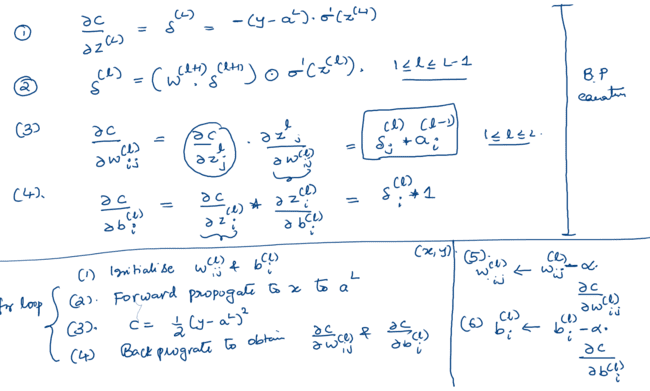 ① ∂C/∂z^(L) = δ^(L) = -(y-a^L)·σ'(z^(L))
② δ^(l) = (w^(l+1)·δ^(l+1)) ⊙ σ'(z^(l)). 1≤l≤L-1
B.P
equation
(3) ∂C/∂w_ij^(l) = ∂C/∂z_j^l · ∂z_j^l/∂w_ij^(l) = δ_j^(l) * a_i^(l-1) 1≤l≤L.
(4). ∂C/∂b_i^(l) = ∂C/∂z_i^(l) * ∂z_i^(l)/∂b_i^(l) = δ_i^(l) * 1
for loop
(1) Initialise w_ij^(l) & b_i^(l)
(x,y)
(2). Forward propogate to x to a^L
(3). C = 1/2 (y-a^L)^2
(4) Back prograte to obtain ∂C/∂w_ij^(l) & ∂C/∂b_i^(l)
(5). w_ij^(l) ← w_ij^(l) - α. ∂C/∂w_ij^(l)
(6) b_i^(l) ← b_i^(l) - α. ∂C/∂b_i^(l)